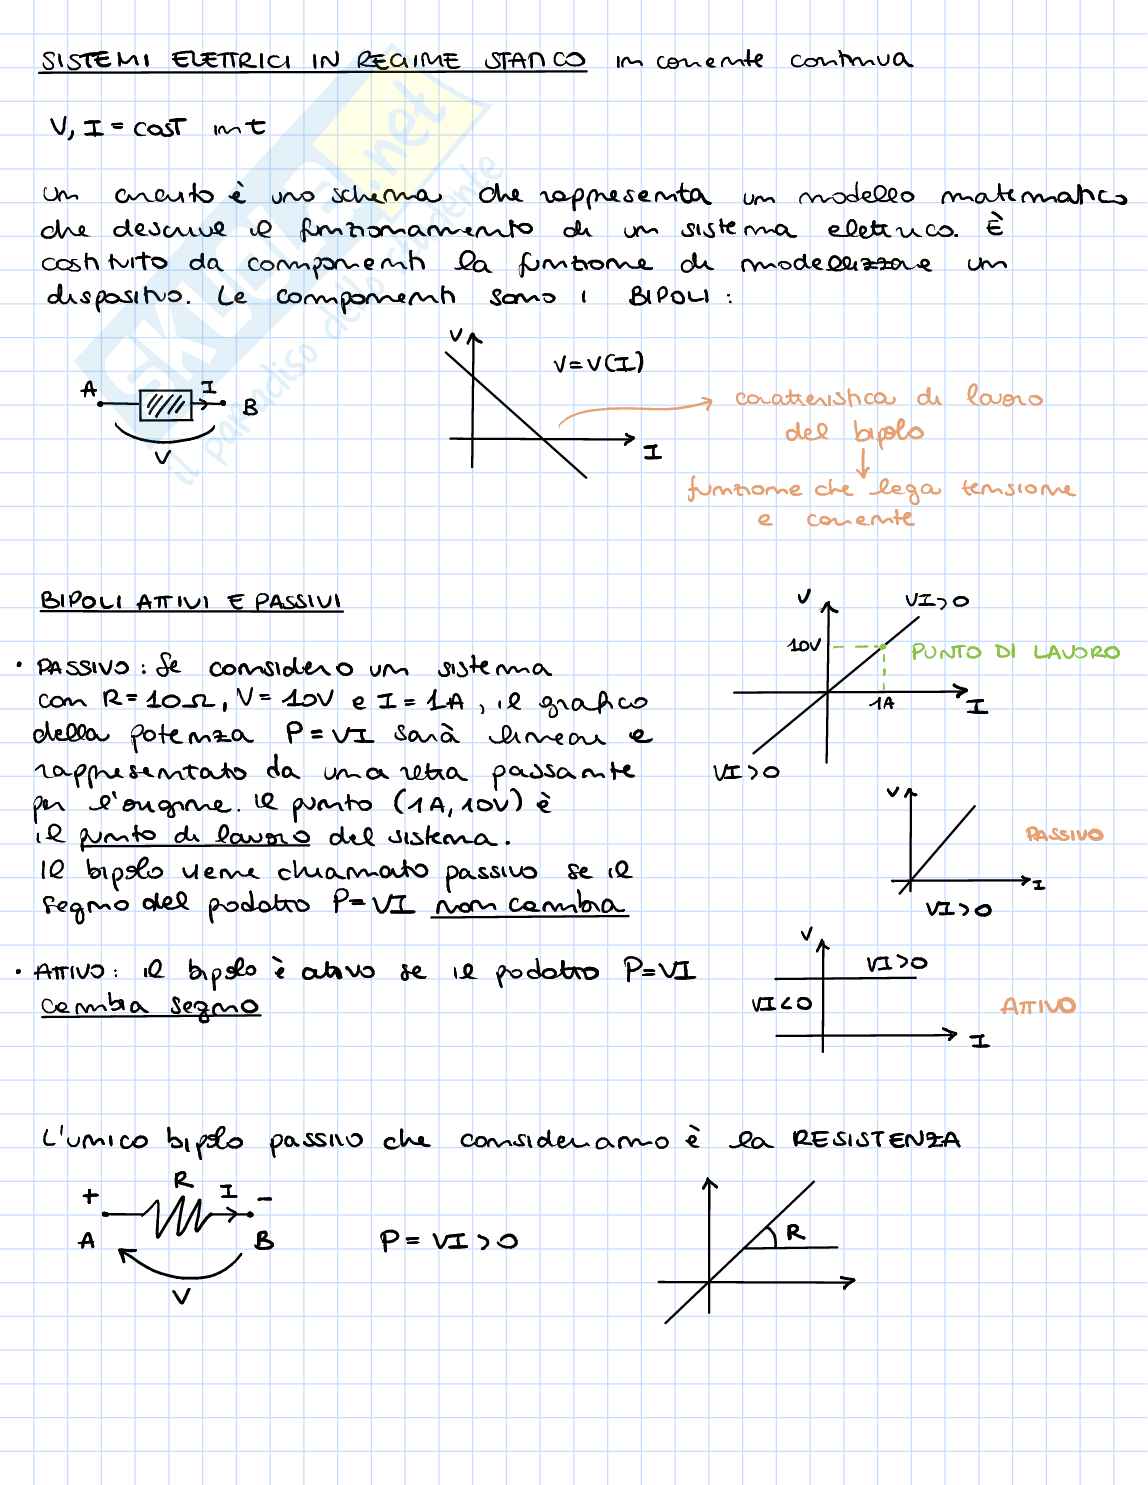 SISTEMI ELETTRICI IN REGIME STATICO in corrente continua
V, I = cost in t
un circuito è uno schema che rappresenta un modello matematico
che descrive il funzionamento di un sistema elettrico. È
costituito da componenti la funzione di modellizzare un
dispositivo. Le componenti sono i BIPOLI:
A I B
V
V V=V(I)
I
caratteristica di lavoro
del bipolo
funzione che lega tensione
e corrente
BIPOLI ATTIVI E PASSIVI
V VI>0
10V PUNTO DI LAVORO
1A I
VI>0
• PASSIVO: Se considero un sistema
con R=10Ω, V=10V e I=1A, il grafico
della potenza P=VI sarà lineare e
rappresentato da una retta passante
per l'origine. Il punto (1A, 10V) è
il punto di lavoro del sistema.
Il bipolo viene chiamato passivo se il
segno del prodotto P=VI non cambia
V
PASSIVO
I
VI>0
• ATTIVO: il bipolo è attivo se il prodotto P=VI
cambia segno
V
VI>0
VI<0 ATTIVO
I
L'unico bipolo passivo che consideriamo è la RESISTENZA
+ R I -
A B
V
P = VI > 0
R
SKUOLA.net
il paradiso dello studente